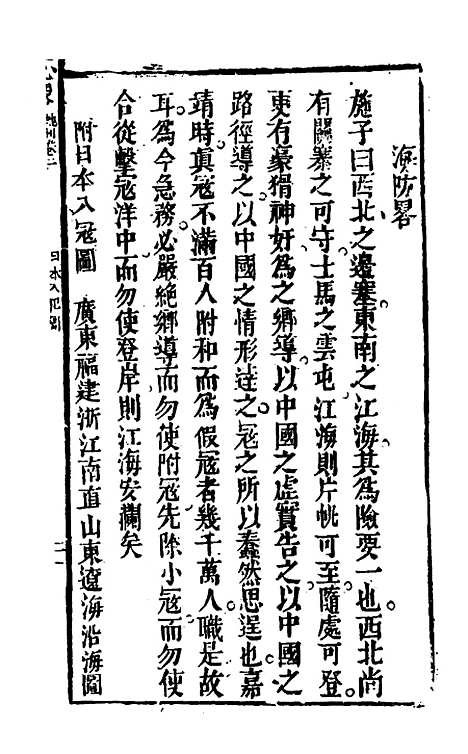 海防畧
施子曰西北之邊塞東南之江海其為險要一也西北尚
有關塞之可守士馬之雲屯江海則片帆可至隨處可登
更有豪猾神奸為之鄉導以中國之虛實告之以中國之
路徑導之以中國之情形達之冦之所以蠢然思逞也嘉
靖時真冦不滿百人附和而為假冦者幾千萬人職是故
耳為今急務必嚴絕鄉導而勿使附冦先除小冦而勿使
合從擊冦洋中而勿使登岸則江海安瀾矣
附日本入冦圖 廣東福建浙江南直山東遼海沿海圖
日本入犯圖